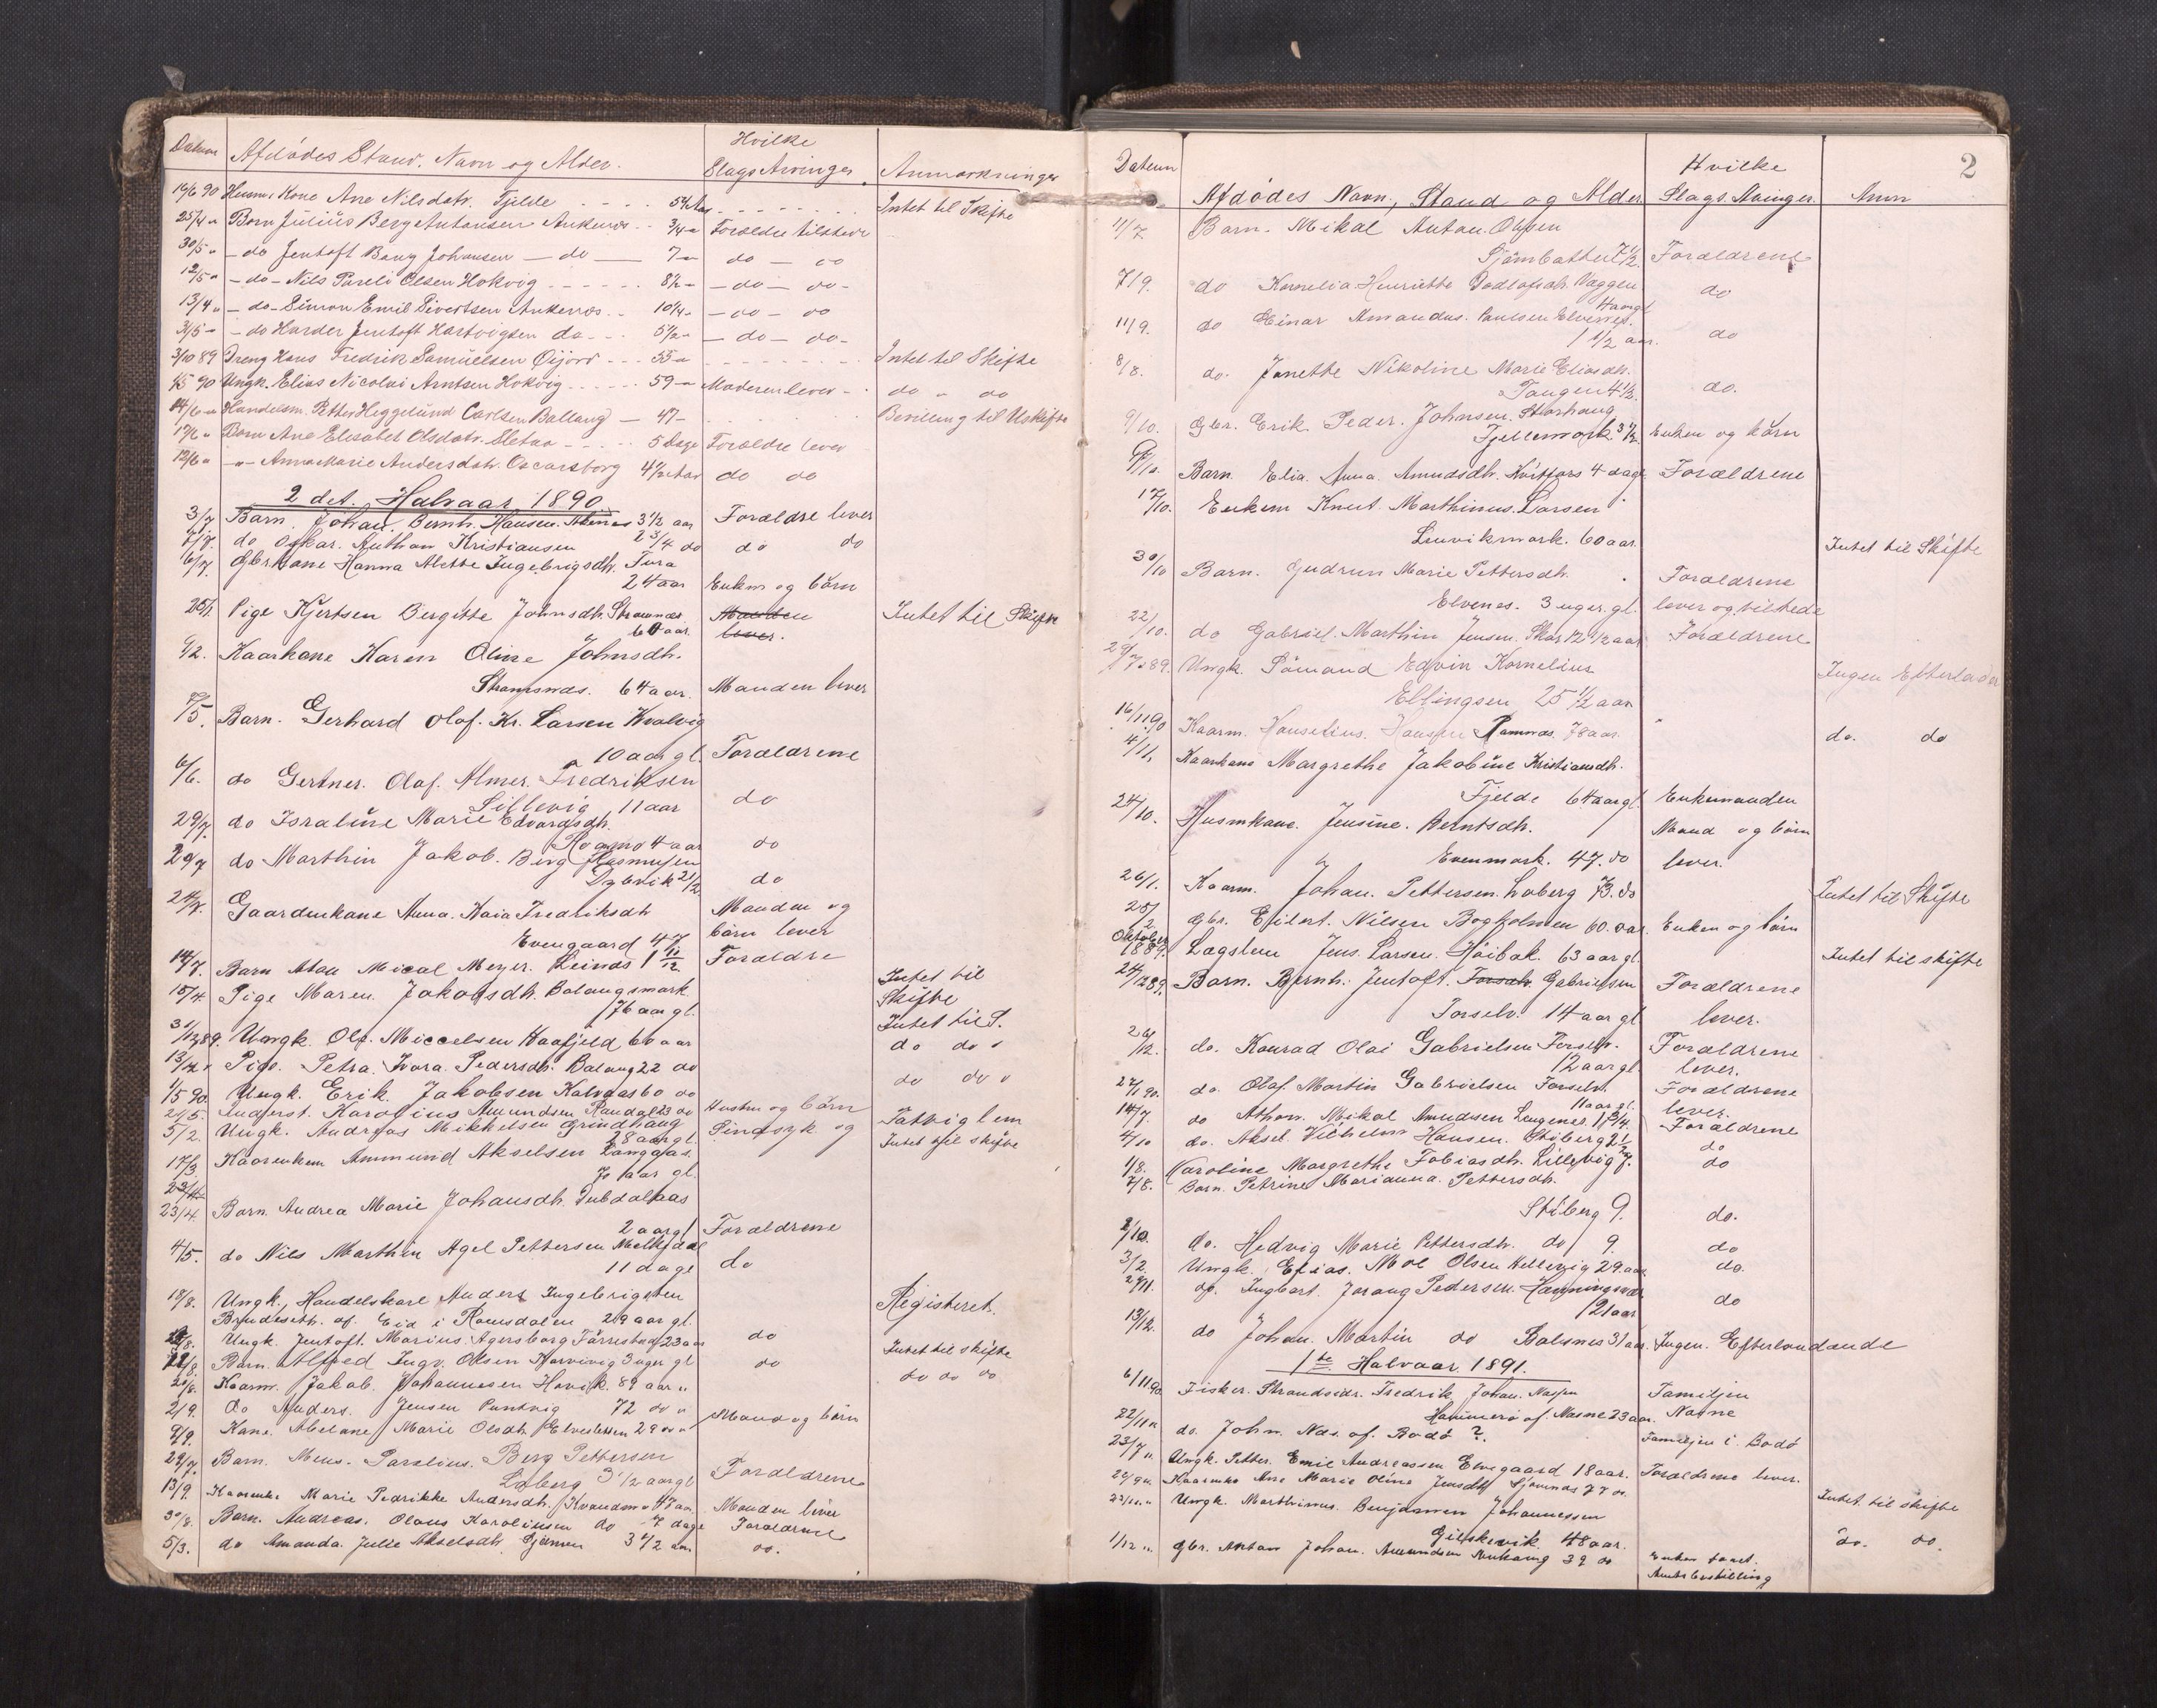 Datum Afdödes Stand, Navn og Alder. Hvilke Slags Arvinger Anmærkninger
16/6 90 Husm. Kone Ane Nilsdatr. Fjelde 54 Aar Intet til Skifte
25/4 " Barn Julius Berg Antonsen Ankenes 3/4 " Forældre tilstede
30/5 " - do Jentoft Bang Johansen - do - 7 " do - do
12/5 " - do - Nils Pareli Olsen Hokvig 8 1/2 " - do - do -
13/4 " - do - Simon Emil Sivertsen Ankenes 10 1/4 " - do - do
31/5 " - do Harder Jentoft Hartvigsen do 5 1/2 " - do - do -
3/10 89 Dreng Hans Fredrik Samuelsen Öijord 55 " Intet til Skifte
1/5 90 Ungk. Elias Nicolai Arntsen Hokvig 59 " Moderen lever - do " do
14/6 " Handelsm. Petter Heggelund Carlsen Ballang - 47 - Bevilling til Uskifte
17/6 " Barn Ane Elisabet Olsdatr. Sletten 5 Dage Forældre lever
12/6 " - " - Anna Marie Andersdatr. Oscarsborg 4 1/2 Aar do do
2det Halvaar 1890
3/7 Barn. Johan Bernh. Hansen. 3 1/2 aar Forældre lever
7/7. do Oskar. Anthon Kristiansen 2 3/4 do do do
6/7. Gbrkone Hanna Alette Ingebrigtsdh.
24 aar Enkem og børn
25/1 Pige Kjertsen Birgitte Johnsdh. Straumnes Manden Intet til Skifte
60 aar. lever.
9/2. Kaarkone Karen Oline Johnsdh.
64 aar. Manden lever
/5. Barn. Gerhard Olaf. Kr. Larsen Kvalvig
10 aar gl. Forældrene
6/6. do Gertner. Olaf. Almer. Fredriksen
Lillevig 11 aar do
29/7. do Israline Marie Edvardsdh.
4 aar do
29/7 do Marthin Jakob. Berg Rasmussen
Dybvik 2 1/2 do
24/7. Gaardmkone Anna. Kaia Fredriksdh Manden og
Evengaard 47 børn lever
14/7. Barn Mical Meyer. Leinæs 1 11/12 Forældre
15/4 Pige Maren Jakobsdh. Balangsmark Intet til
76 aar gl. Skifte
31/12 89. Ungk. Ole. Miccelsen Haafjeld 60 aar Intet til S.
13/4 " Pige. Petra. Ivara. Pedersdh. Balang 22 do do do "
1/5 90. Ungk. Erik. Jakobsen 60 do do do "
21/5. Inderst. Karolius Amundsen 23 do Hustru og børn Fattiglem
5/2. Ungk. Andreas Mikkelsen Grindhaug Sindsyk og Intet til skifte
28 aar gl.
17/3 Kaarenkem Ammund Akselsen
aar gl.
23/4. Barn. Andrea Marie Johansdh.
2 aar gl Forældrene
4/5. do Nils Marthin Agel Pettersen
11 dage do
18/8. Ungk., Handelskarl Anders Ingebrigtsen Registeret.
af. Eid i Romsdalen 29 aar gl.
/8. Ungk. Jentoft. Marius. Agersborg 23 aar do Intet til skifte
/8. Barn. Alfred Ingv. Olsen 3 uger gl do do do do
/8. Kaarm. Jakob. Johannesen 89 aar "
2/9. do Anders. Jensen 72 do "
9/9. Kane. Marie Olsdh. 29 do " Mand og børn
29/7. Barn. Mens. Parelius. Berg Pettersen
Loberg 3 1/2 aar gl Forældrene
13/9. Marie Pedrikke Andersdh. 47 aar Manden lever
30/8. Barn. Andreas. Olaus Karolinsen do 7 dage Forældrene
5/3. do Amanda. Julie Akselsdh. 3 1/2 aar do.
2
Datum Afdödes Navn, Stand og Alder Hvilke Slags Avinger. Anm
11/7 Barn. Mikal Anton Olsen
7 1/2. Forældrene
7/9. do Kornelia Henriette Vaggen
4 aar gl do
11/9. do Einar Amandus. Paulsen Elvenes.
1 1/2 aar. do
8/8. do. Janette Nikoline Marie Eliasdh.
Tangen 4 1/2. do.
9/10. Gbr. Erik Peder. Johnsen. Storhaug
37 Enken og børn
9/10. Barn. Elia. Anna Amundsdh. Kvitfors 4 dage Forældrene
17/10. Enkem Knut. Marthinus. Larsen
Lenvikmark. 60 aar. Intet til Skifte
30/10 Barn. Gudrun Marie Pettersdh. Forældrene
Elvenes. 3 uger gl. lever og tilstede
22/10. do Gabriel. Marthin Jensen. 12 1/2 aar Forældrene
29/7. 89. Ungk. Sömand Edvin Kornelius Ingen Efterlader
Ellingsen 25 1/2 aar
16/11 90 Kaarm. Hanselius. Hansen Ramnes. 78 aar. " do. do
4/11. Kaarkone Margrethe Jakobine Kristiansdh.
Fjelde 64 aar gl. Enkemanden
24/10. Husmkone. Jensine. Berntsdh. Mand og børn
Evenmark. 47. do lever.
26/1. Kaarm. Johan. Pettersen. Loberg 73. do Intet til Skifte
25/2 Gbr. Eilert. Nilsen Bogholmen 60. aar. Enken og børn
Oktober 1889. Lægslem Jens. Larsen. Höibak. 63 aar gl. Intet til skifte
24/12 89. Barn. Bernh. Jentoft. Gabrielsen Forældrene
Forselv. 14 aar gl. lever.
26/12. do. Konrad Olai Gabrielsen Forselv. Forældrene
12 aar gl. lever.
27/1 90. do. Olaf. Martin Gabrielsen Forselv. Forældrene
11 aar gl. lever.
14/7. do Athon. Mikal Amundsen Lengenes. 1 3/4. Forældrene
4/10 do. Aksel. Vilhelm Hansen. Stiberg 2 1/2 do
1/8. Karoline Margrethe Tobiasdh. Lillevig 7. do
7/8. Barn. Petrine Marianna. Pettersdh.
Stiberg 9. do.
/10. do. Hedvig Marie Pettersdh. do 9. do
3/2. Ungk. Elias. Mol Olsen 29. aar do
29/11. do. Ingbart. Jorang Pedersen.
21 aar do
13/12. do Johan. Martin do Balsnes 31 aar. Ingen. Efterlondande
1ste Halvaar 1891.
6/11 90 Fisker. Fredrik. Johan. Familjen
af. Nasne 23 aar. Nasne
22/11 " do. John. Næs. af. Bodö ?. Familjen i. Bodö
23/7 ". Ungk. Petter. Emil Andreassen Elvegaard 18 aar. Forældrene lever.
Ane Marie Oline Jensdh. 77 do Intet til skifte
22/11 ". Ungk. Marthinus. Benjamin Johannessen
48 aar. do. do.
1/12 ". Gbr. Anton Johan. Amundsen 39 do Enken